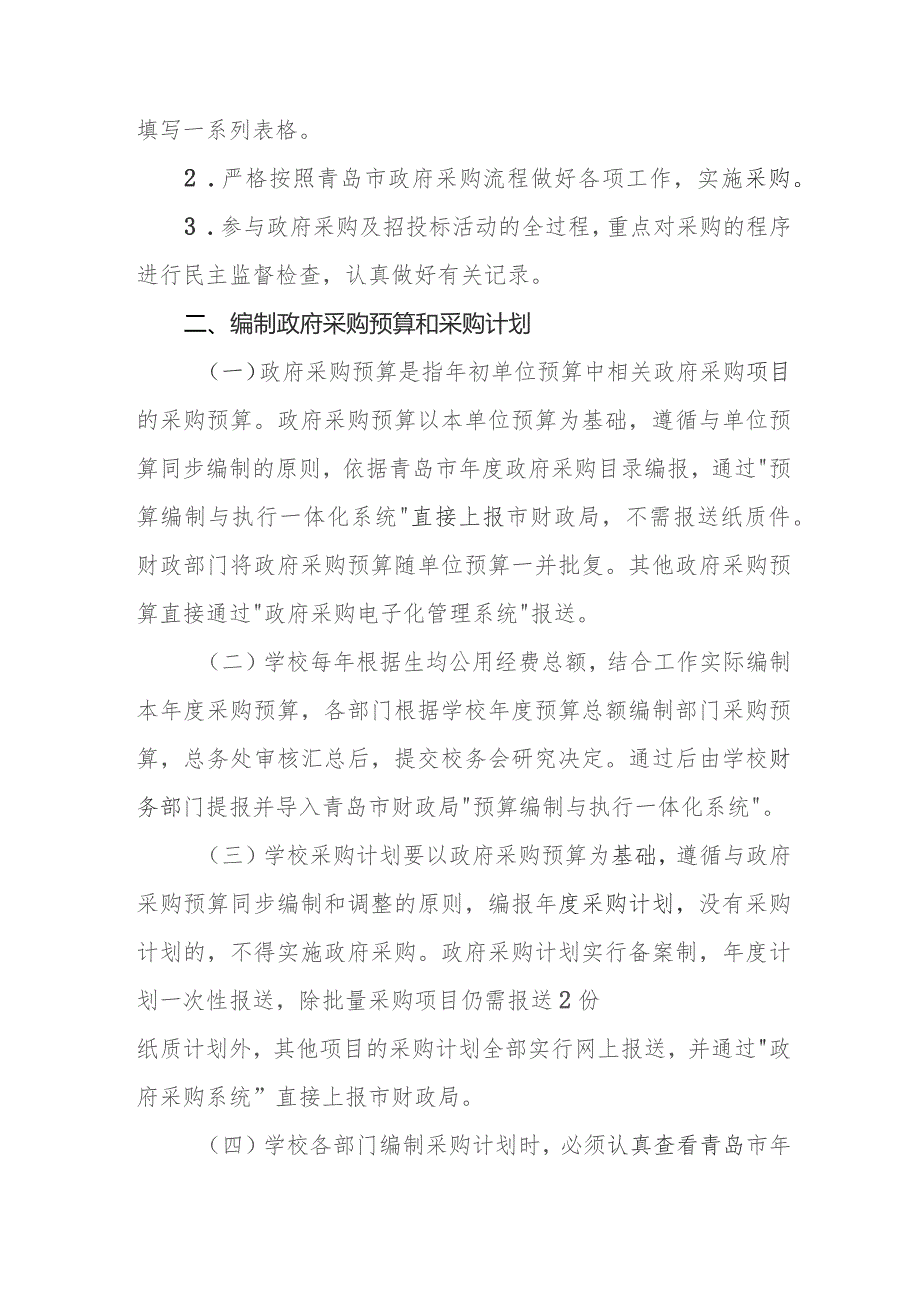 填写一系列表格。
2.严格按照青岛市政府采购流程做好各项工作，实施采购。
3.参与政府采购及招投标活动的全过程，重点对采购的程序
进行民主监督检查，认真做好有关记录。
二、编制政府采购预算和采购计划
（一）政府采购预算是指年初单位预算中相关政府采购项目
的采购预算。政府采购预算以本单位预算为基础，遵循与单位预
算同步编制的原则，依据青岛市年度政府采购目录编报，通过"预
算编制与执行一体化系统"直接上报市财政局，不需报送纸质件。
财政部门将政府采购预算随单位预算一并批复。其他政府采购预
算直接通过"政府采购电子化管理系统"报送。
（二）学校每年根据生均公用经费总额，结合工作实际编制
本年度采购预算，各部门根据学校年度预算总额编制部门采购预
算，总务处审核汇总后，提交校务会研究决定。通过后由学校财
务部门提报并导入青岛市财政局"预算编制与执行一体化系统"。
（三）学校采购计划要以政府采购预算为基础，遵循与政府
采购预算同步编制和调整的原则，编报年度采购计划，没有采购
计划的，不得实施政府采购。政府采购计划实行备案制，年度计
划一次性报送，除批量采购项目仍需报送2份
纸质计划外，其他项目的采购计划全部实行网上报送，并通过"政
府采购系统”直接上报市财政局。
（四）学校各部门编制采购计划时，必须认真查看青岛市年